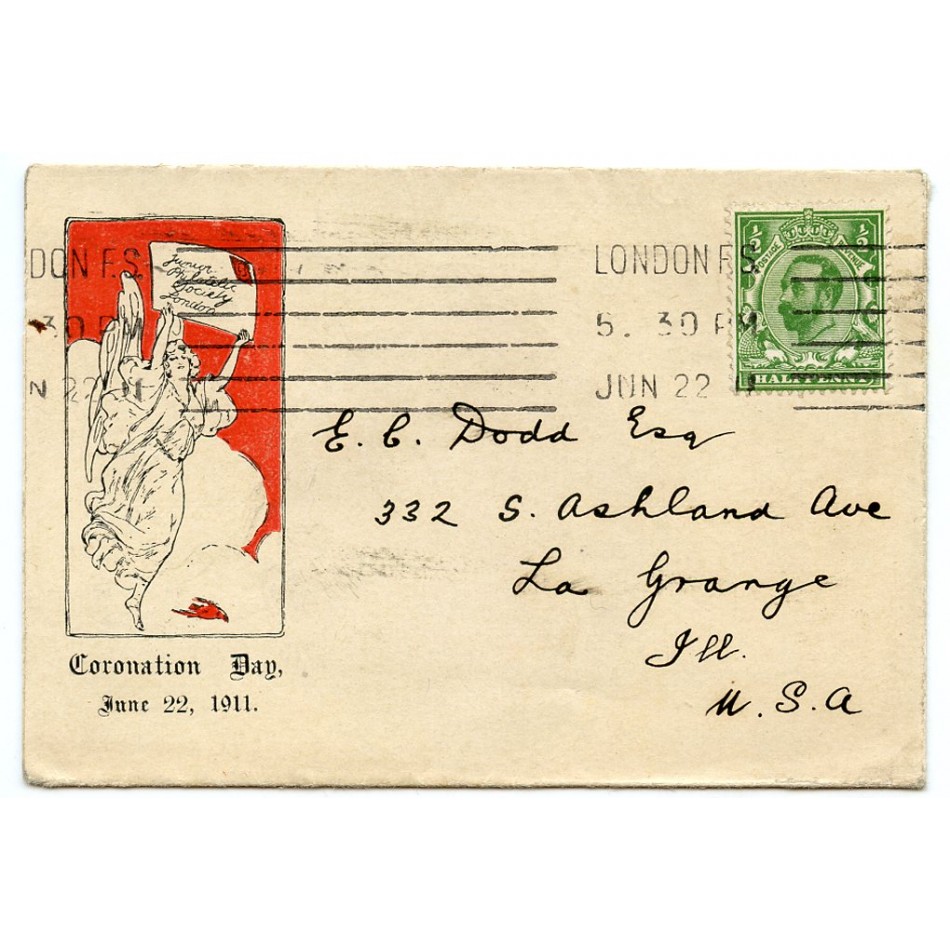 DON F.S.
.30 PM
N 22 11
Junior
Philatelic
Society
London
LONDON F.S.
5. 30 PM
JUN 22 11
½ ½
POSTAGE REVENUE
HALFPENNY
E. C. Dodd Esq
332 S. Ashland Ave
La Grange
Ill.
U.S.A
Coronation Day,
June 22, 1911.